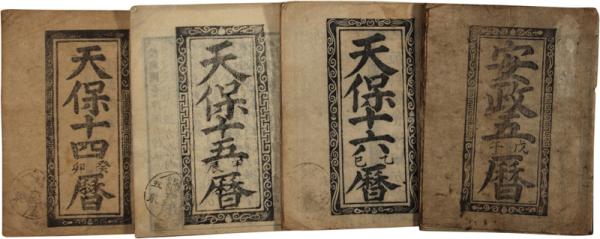 天保十四
癸卯
暦
天保十五
暦
天保十六
乙巳
暦
安政五
戊午
暦